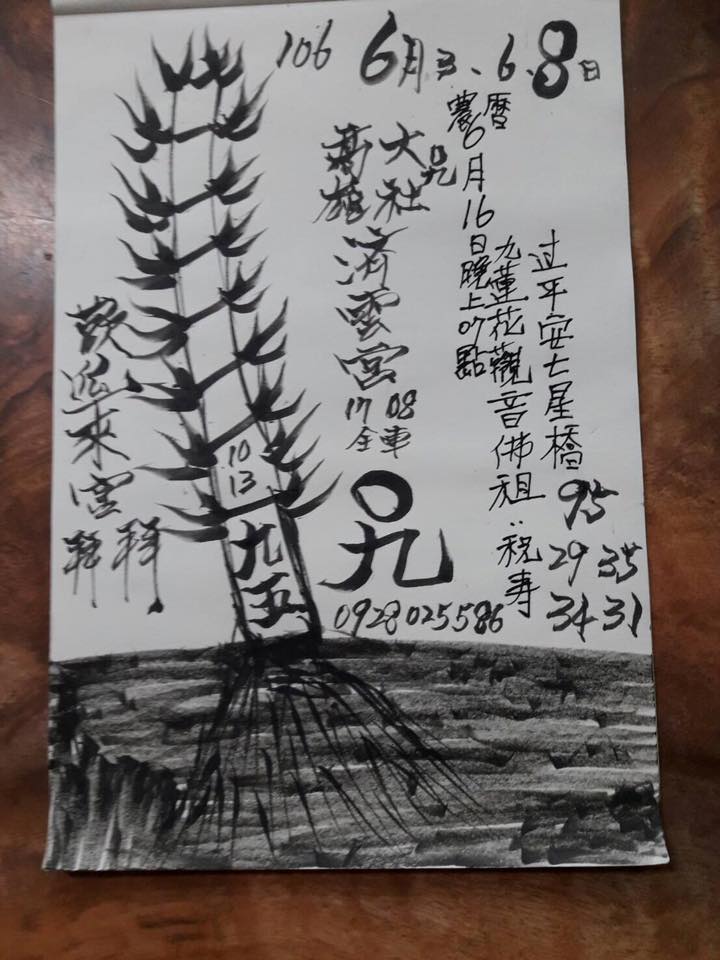 106 6月3、6、8日
農曆6月16日晚上07點
過平安七星橋
九蓮花觀音佛祖:祝寿
95
29 35
34 31
高雄
大社
濟雲宮
17 08
全車
九
0928025586
歡迎來宮
拜拜
10
13
九五